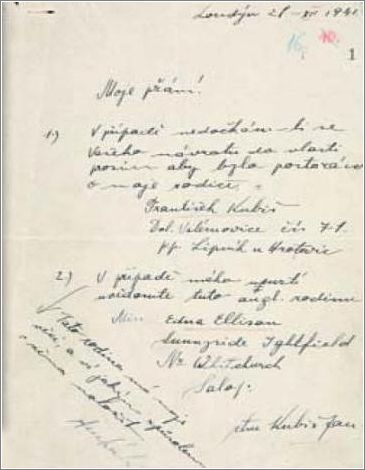 Londýn 28 - XII 1941
16. 10.
1
Moje přání!
1.) V případě nedočkám-li se
Vašeho návratu do vlasti
prosím aby bylo postaráno
o moje rodiče.
František Kubiš
Dol. Vilémovice čís 71.
pp. Lipník u Hrotovic
2.) V případě mého úmrtí
uvědomte tuto angl. rodinu
Miss Edna Ellison
Sunnyside Ightfield
Nr Whitchurch
Salop.
Kubiš Jan
Tato rodina má moji
věci, a ví jakým způsobem
s nima naložit